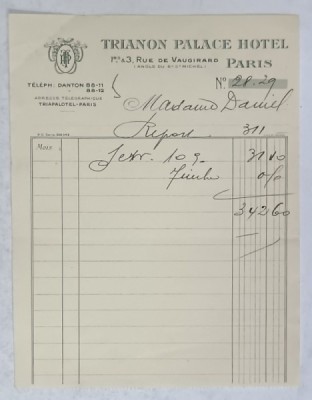 TRIANON PALACE HOTEL
1bis & 3, RUE DE VAUGIRARD
(ANGLE DU Bd ST-MICHEL)
PARIS
TÉLÉPH. DANTON 88-11
88-12
ADRESSE TÉLÉGRAPHIQUE
TRIAPALOTEL-PARIS
No 28.29
Madame Daniel
Report 311
MOIS
3110
342,60